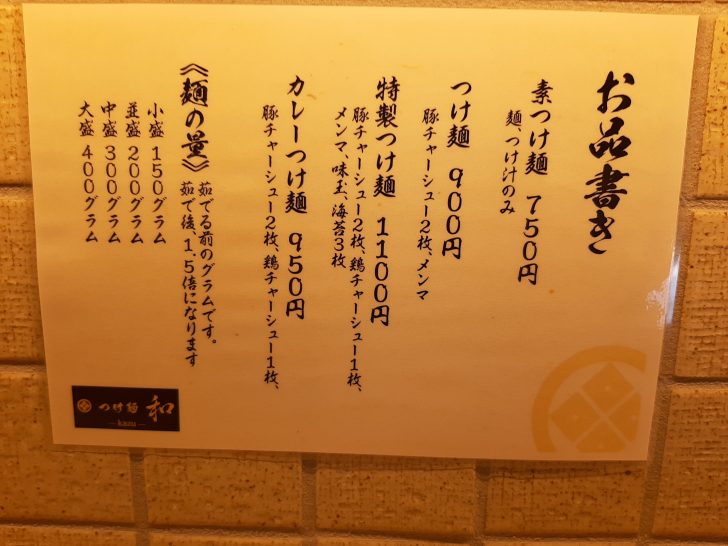 お品書き
素つけ麺 750円
麺、つけ汁のみ
つけ麺 900円
豚チャーシュー2枚、メンマ
特製つけ麺 1100円
豚チャーシュー2枚、鶏チャーシュー1枚、
メンマ、味玉、海苔3枚
カレーつけ麺 950円
豚チャーシュー2枚、鶏チャーシュー1枚、
《麺の量》 茹でる前のグラムです。
茹で後、1.5倍になります
小盛 150グラム
並盛 200グラム
中盛 300グラム
大盛 400グラム
つけ麺 和
―kazu―